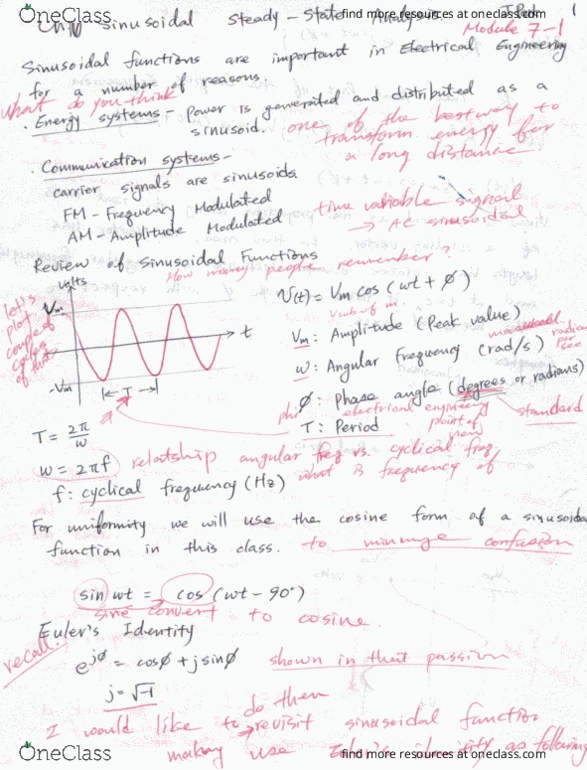 OneClass
find more resources at oneclass.com
Sinusoidal Steady-State
1
Module 7-1
Sinusoidal functions are important in Electrical Engineering
for a number of reasons.
what do you think
· Energy systems - Power is generated and distributed as a
sinusoid.
one of the best way to
transform energy for
a long distance
· Communication systems-
carrier signals are sinusoids
FM-Frequency Modulated
AM-Amplitude Modulated
time variable signal
→ AC sinusoidal
Review of Sinusoidal Functions
How many people remember?
volts
Vm
-Vm
t
T
let's
plot
couple of
cycles
of
v(t) = Vm cos (ωt + ø)
V sub of m
Vm: Amplitude (Peak value)
ω: Angular Frequency (rad/s)
radian
per
sec
ø: Phase angle (degrees or radians)
phi
electrical engineering
point of
view
standard
T: Period
T = 2π/ω
ω = 2πf
relatship angular freq vs. cyclical freq
what is frequency of
f: cyclical frequency (Hz)
For uniformity we will use the cosine form of a sinusoidal
function in this class.
to
confusion
sin ωt = cos (ωt - 90°)
sine convert to cosine.
Euler's Identity
recall.
e^jø = cosø + j sinø
shown in that
j = √-1
do then
I would like to revisit sinusoidal function
making use Euler's identity as following
OneClass
find more resources at oneclass.com